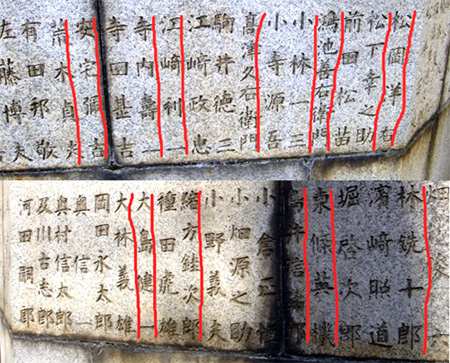 松岡洋右
松下幸之助
前田松苗
鴻池善右衛門
小林一三
小寺源吾
高津久右衛門
駒井徳三
江崎政忠
江崎利一
寺内壽一
寺田甚吉
安宅彌吉
荒木貞夫
有田邦敬
藤博夫
六
林銑十郎
濱崎照道
堀啓次郎
東條英機
小倉正恒
小畑源之助
小野義夫
緒方銈次郎
種田虎雄
大島健一
大林義雄
岡田永太郎
奥信一
奥村信太郎
及川古志郎
河田嗣郎